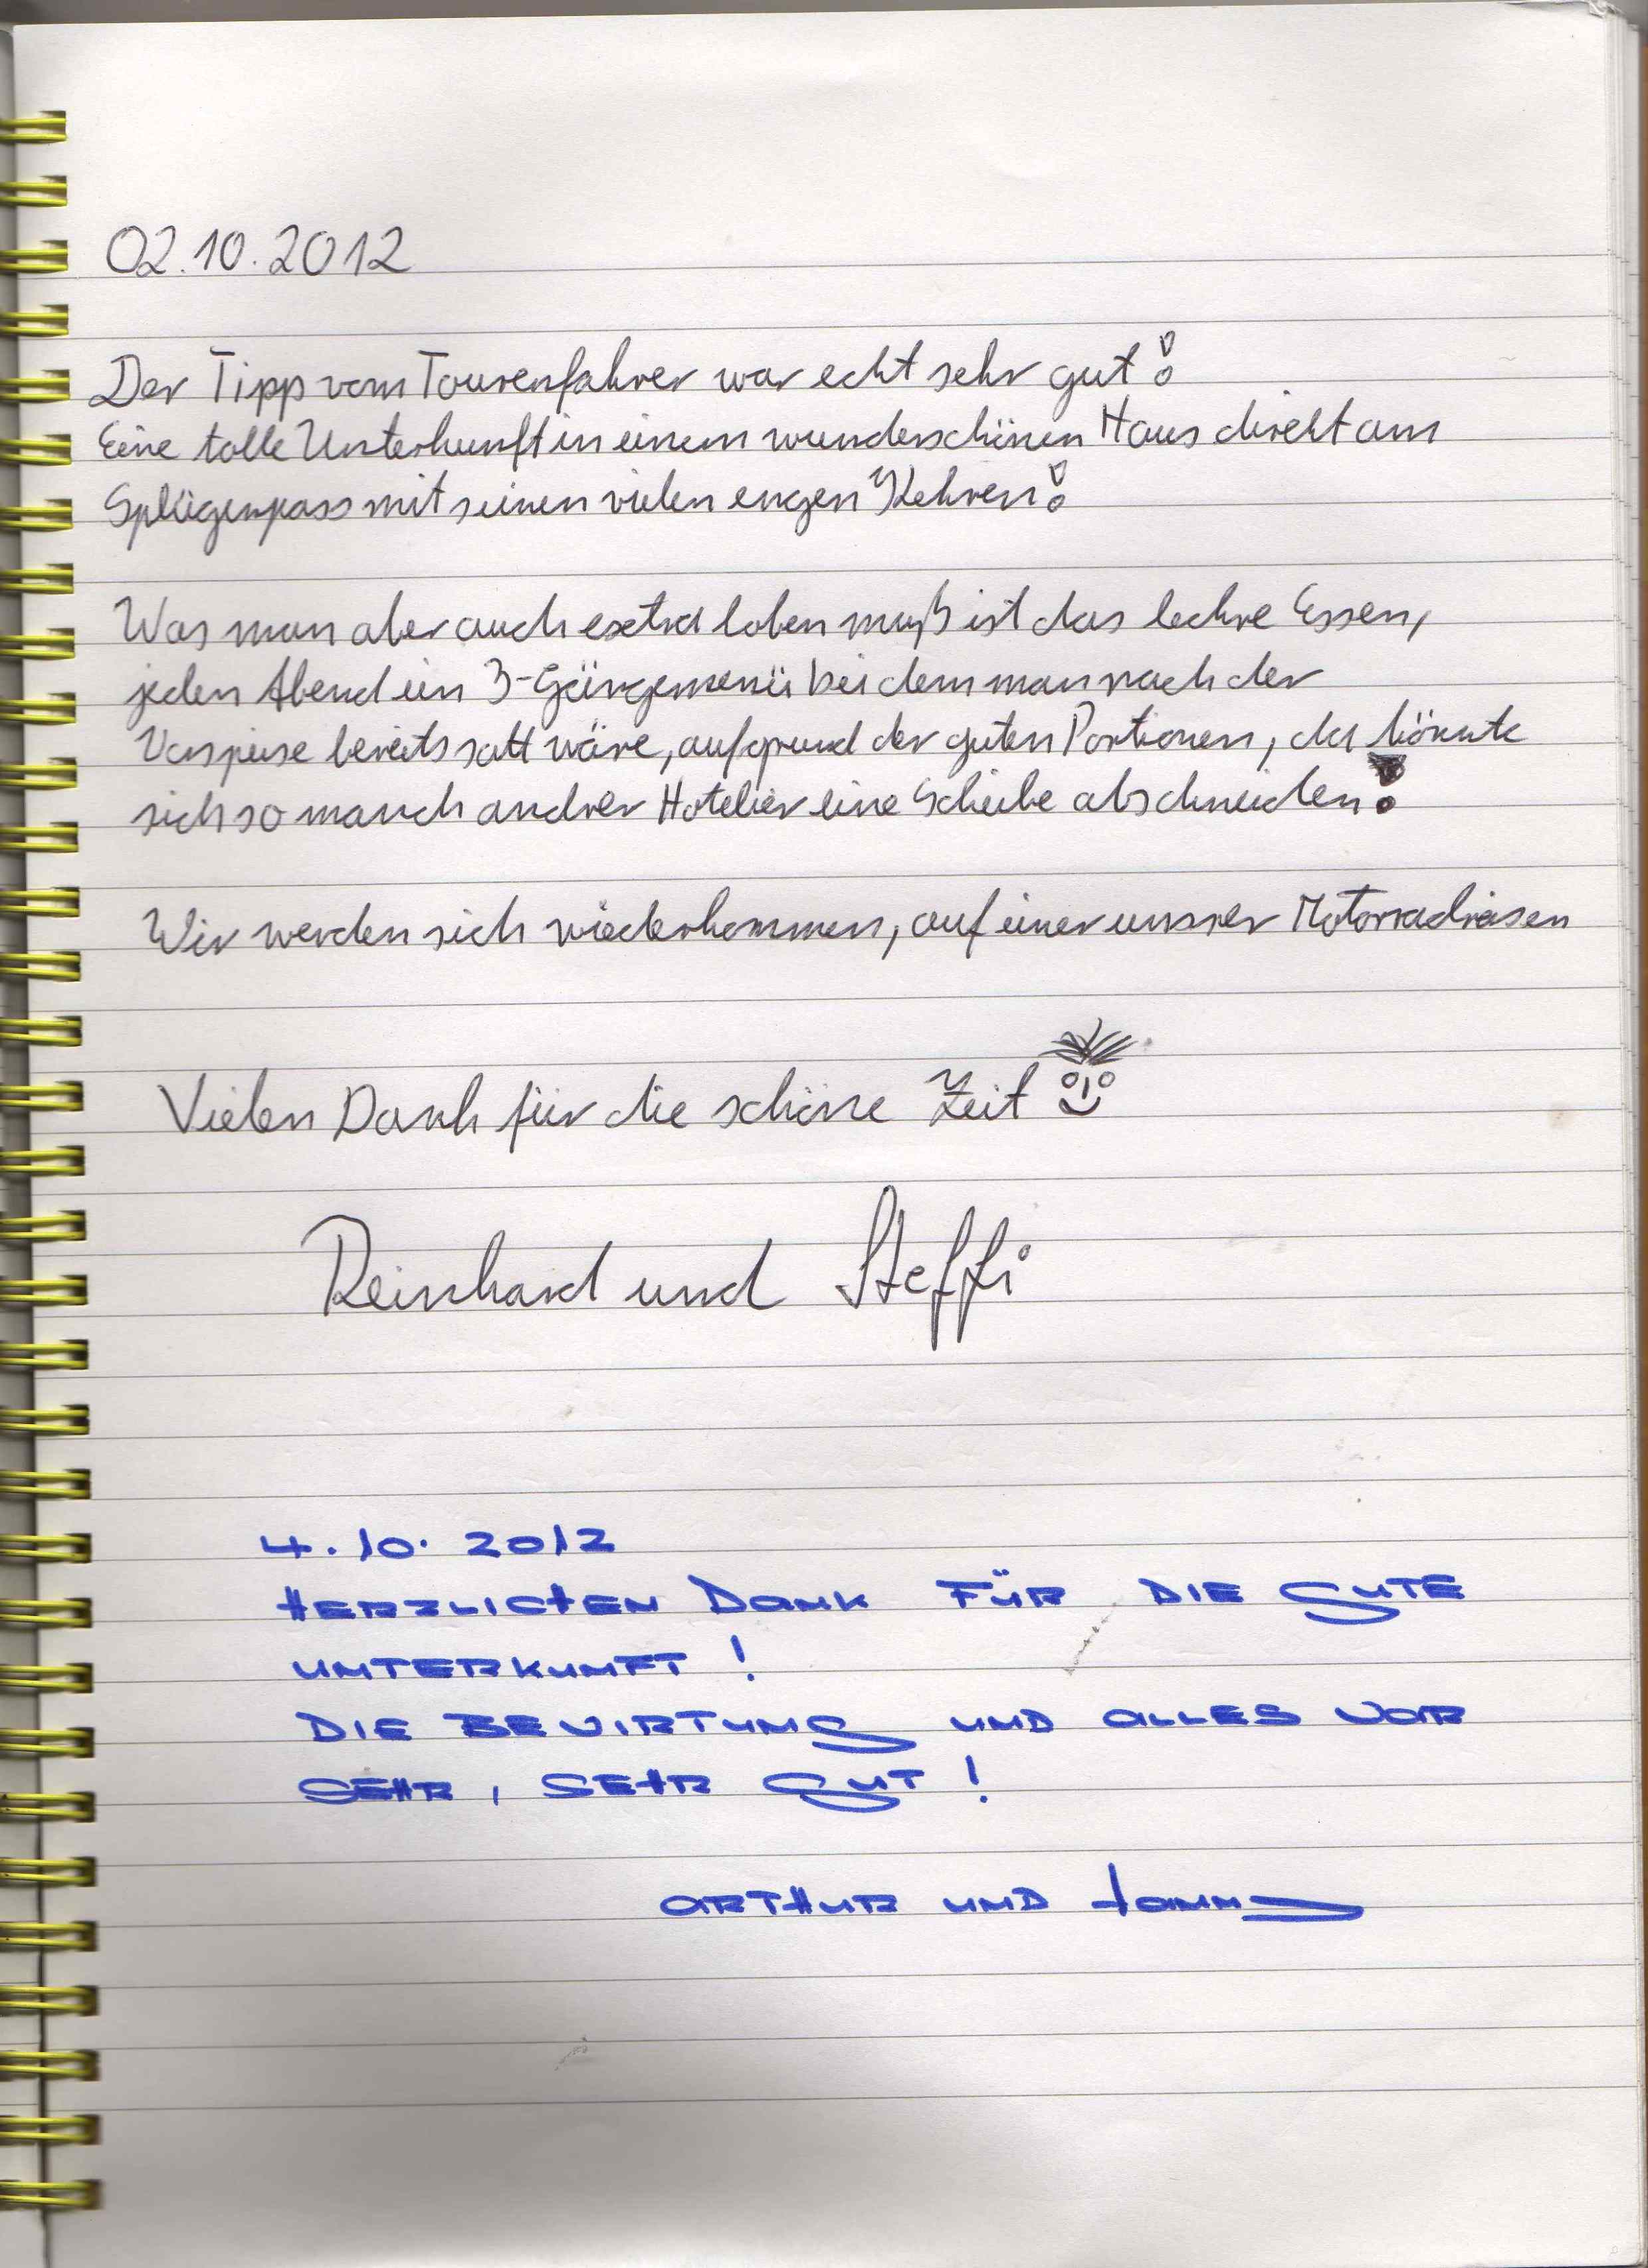 02.10.2012
Der Tipp vom Tourenfahrer war echt sehr gut!
Eine tolle Unterkunft in einem wunderschönen Haus direkt am
Splügenpass mit seinen vielen engen Kehren!
Was man aber auch extra loben muß ist das leckre Essen,
jeden Abend ein 3-Gängemenü bei dem man nach der
Vorspeise bereits satt wäre, aufgrund der guten Portionen, da könnte
sich so manch andrer Hotelier eine Scheibe abschneiden!
Wir werden sich wiederkommen, auf einer unsrer Motorradreisen
Vielen Dank für die schöne Zeit
Reinhard und Steffi
4.10.2012
HERZLICHEN DANK FÜR DIE GUTE
UNTERKUNFT!
DIE BEWIRTUNG UND ALLES WAR
SEHR, SEHR GUT!
ARTHUR UND